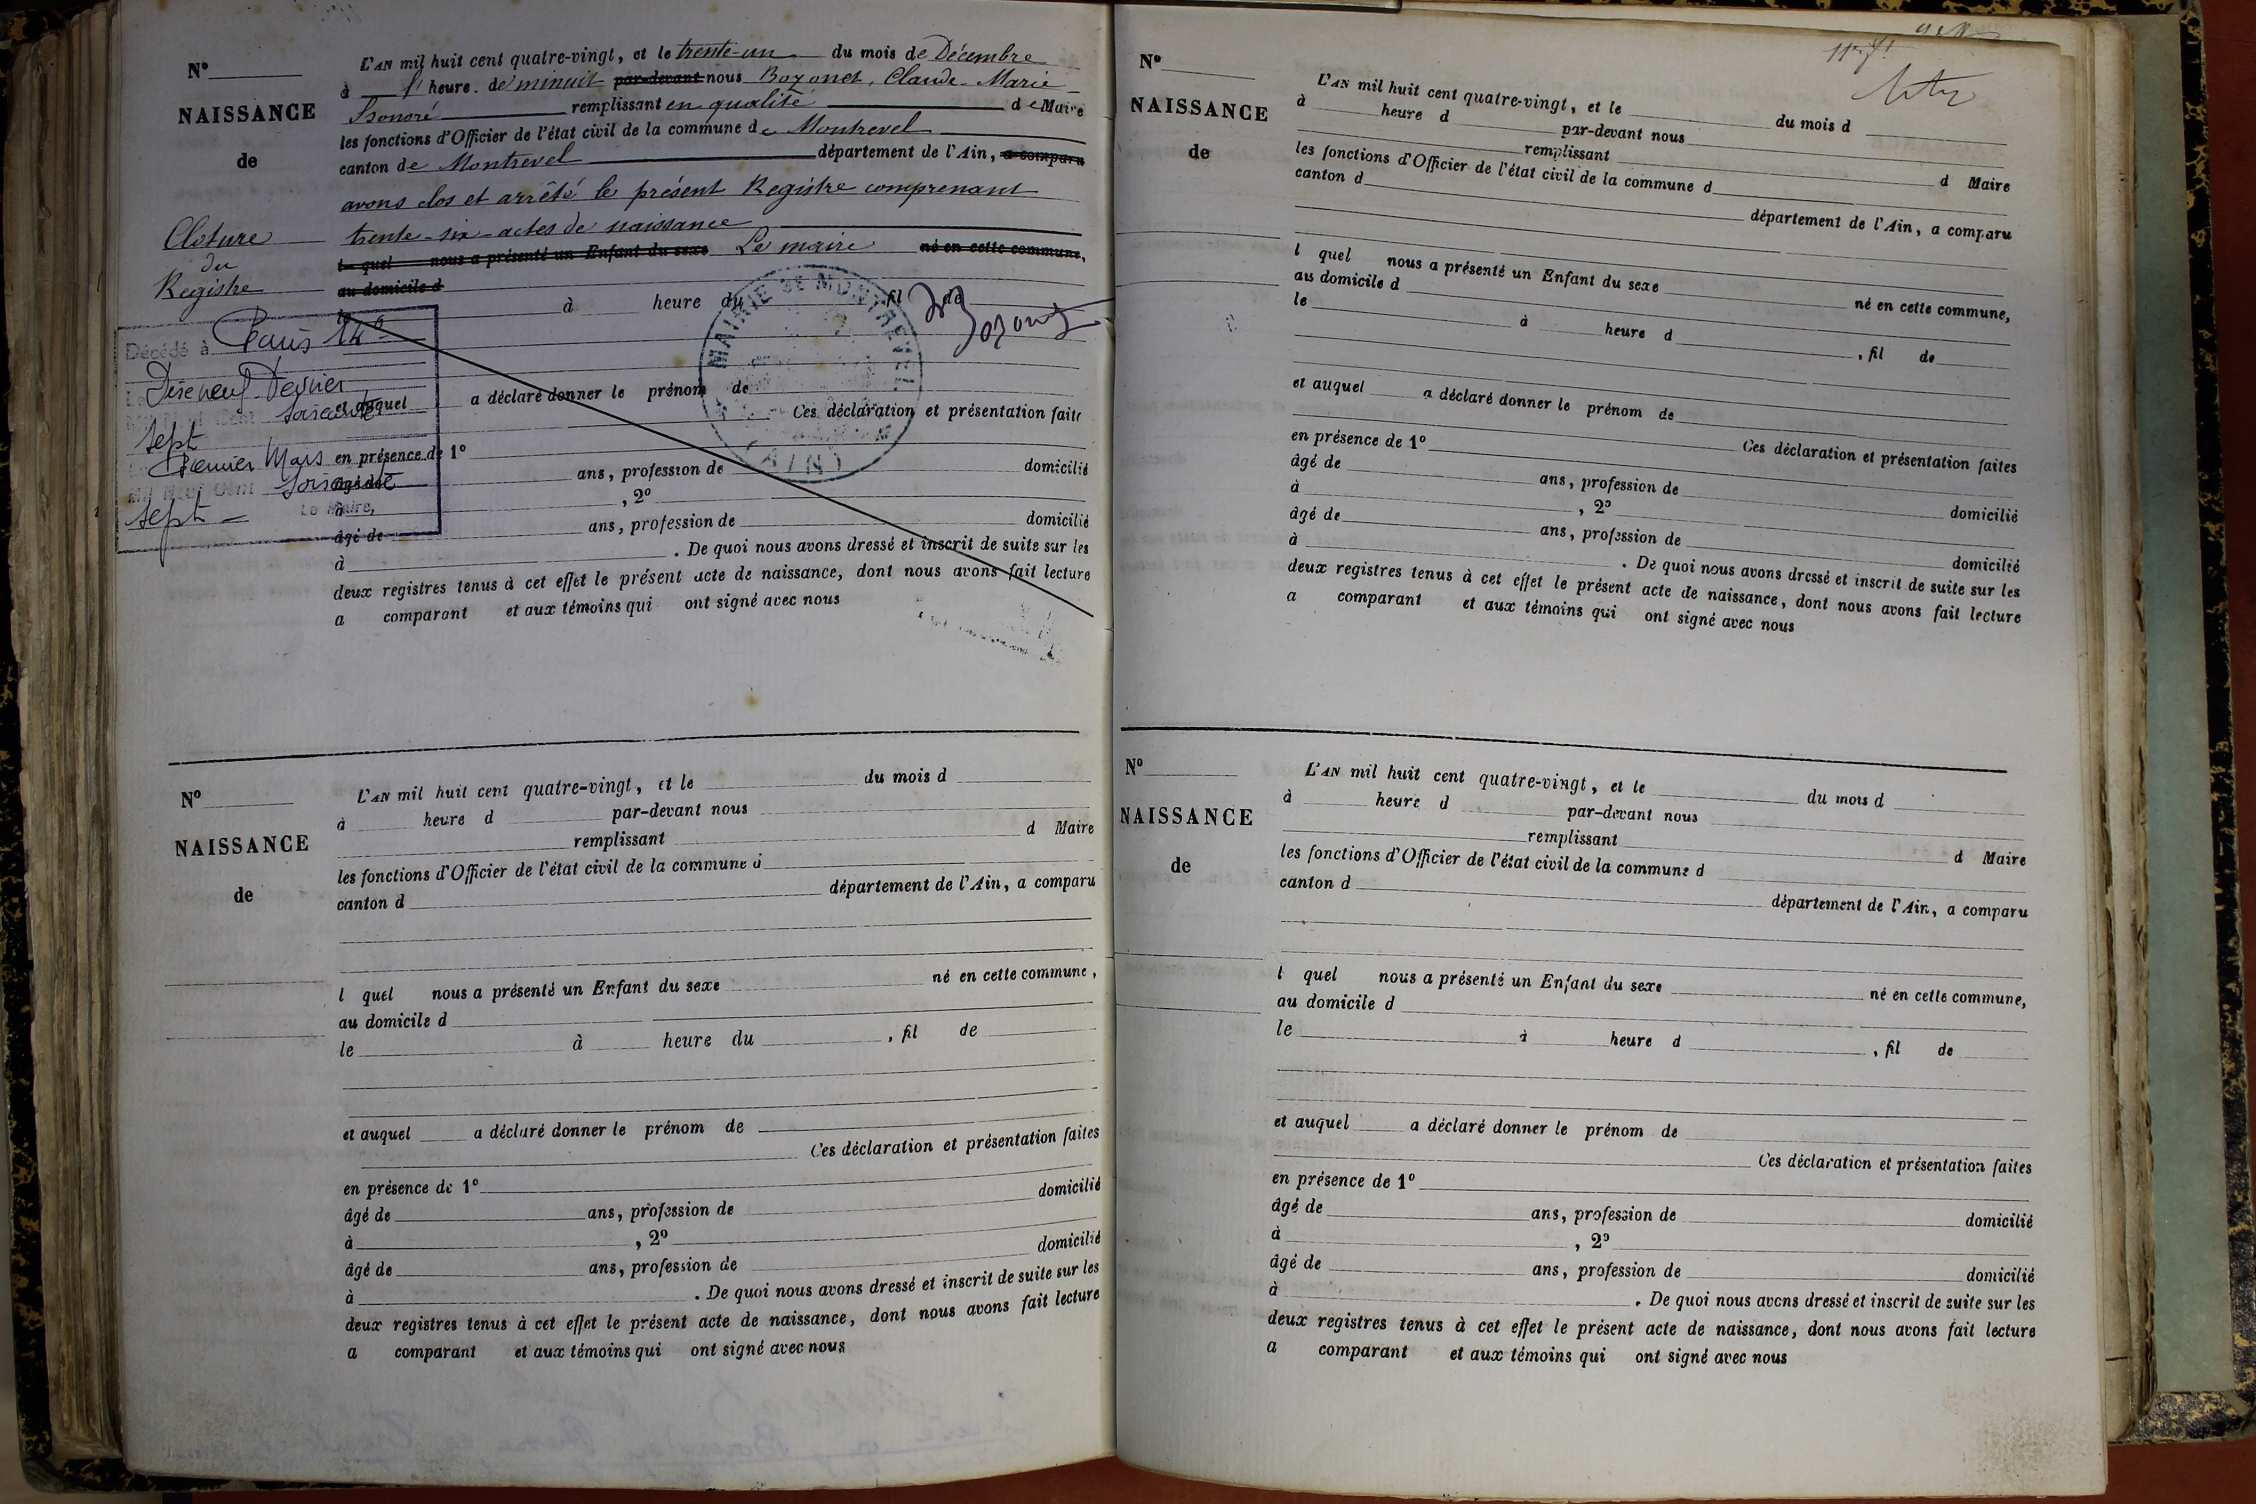 N°
NAISSANCE
de
Clôture
du
Registre
L'AN mil huit cent quatre-vingt, et le trente-un du mois de Décembre
à l' heure de minuit par-devant nous Bozonet, Claude-Marie-
Honoré remplissant en qualité de Maire
les fonctions d'Officier de l'état civil de la commune de Montrevel
canton de Montrevel département de l'Ain, a comparu
avons clos et arrêté le présent Registre comprenant
trente-six-actes de naissance
l quel nous a présenté un Enfant du sexe Le maire né en cette commune,
au domicile d
le à heure du , fil de
MAIRIE DE MONTREVEL
(AIN)
Bozonet
Décédé à Paris 14e
Dix neuf Février
Mil Neuf Cent soixante
sept
Premier Mars
Mil Neuf Cent soixante
sept
Le Maire,
et auquel a déclaré donner le prénom de
Ces déclaration et présentation faites
en présence de 1°
âgé de ans, profession de domicilié
à , 2°
âgé de ans, profession de domicilié
à . De quoi nous avons dressé et inscrit de suite sur les
deux registres tenus à cet effet le présent acte de naissance, dont nous avons fait lecture
a comparant et aux témoins qui ont signé avec nous
N°
NAISSANCE
de
L'AN mil huit cent quatre-vingt, et le du mois d
à heure d par-devant nous
remplissant d Maire
les fonctions d'Officier de l'état civil de la commune d
canton d département de l'Ain, a comparu
l quel nous a présenté un Enfant du sexe né en cette commune,
au domicile d
le à heure du , fil de
et auquel a déclaré donner le prénom de
Ces déclaration et présentation faites
en présence de 1°
âgé de ans, profession de domicilié
à , 2°
âgé de ans, profession de domicilié
à . De quoi nous avons dressé et inscrit de suite sur les
deux registres tenus à cet effet le présent acte de naissance, dont nous avons fait lecture
a comparant et aux témoins qui ont signé avec nous
N°
NAISSANCE
de
L'AN mil huit cent quatre-vingt, et le du mois d
à heure d par-devant nous
remplissant d Maire
les fonctions d'Officier de l'état civil de la commune d
canton d département de l'Ain, a comparu
l quel nous a présenté un Enfant du sexe né en cette commune,
au domicile d
le à heure d , fil de
et auquel a déclaré donner le prénom de
Ces déclaration et présentation faites
en présence de 1°
âgé de ans, profession de domicilié
à , 2°
âgé de ans, profession de domicilié
à . De quoi nous avons dressé et inscrit de suite sur les
deux registres tenus à cet effet le présent acte de naissance, dont nous avons fait lecture
a comparant et aux témoins qui ont signé avec nous
N°
NAISSANCE
de
L'AN mil huit cent quatre-vingt, et le du mois d
à heure d par-devant nous
remplissant d Maire
les fonctions d'Officier de l'état civil de la commune d
canton d département de l'Ain, a comparu
l quel nous a présenté un Enfant du sexe né en cette commune,
au domicile d
le à heure d , fil de
et auquel a déclaré donner le prénom de
Ces déclaration et présentation faites
en présence de 1°
âgé de ans, profession de domicilié
à , 2°
âgé de ans, profession de domicilié
à . De quoi nous avons dressé et inscrit de suite sur les
deux registres tenus à cet effet le présent acte de naissance, dont nous avons fait lecture
a comparant et aux témoins qui ont signé avec nous